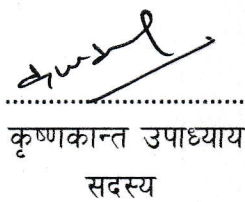 कृष्णकान्त उपाध्याय
सदस्य